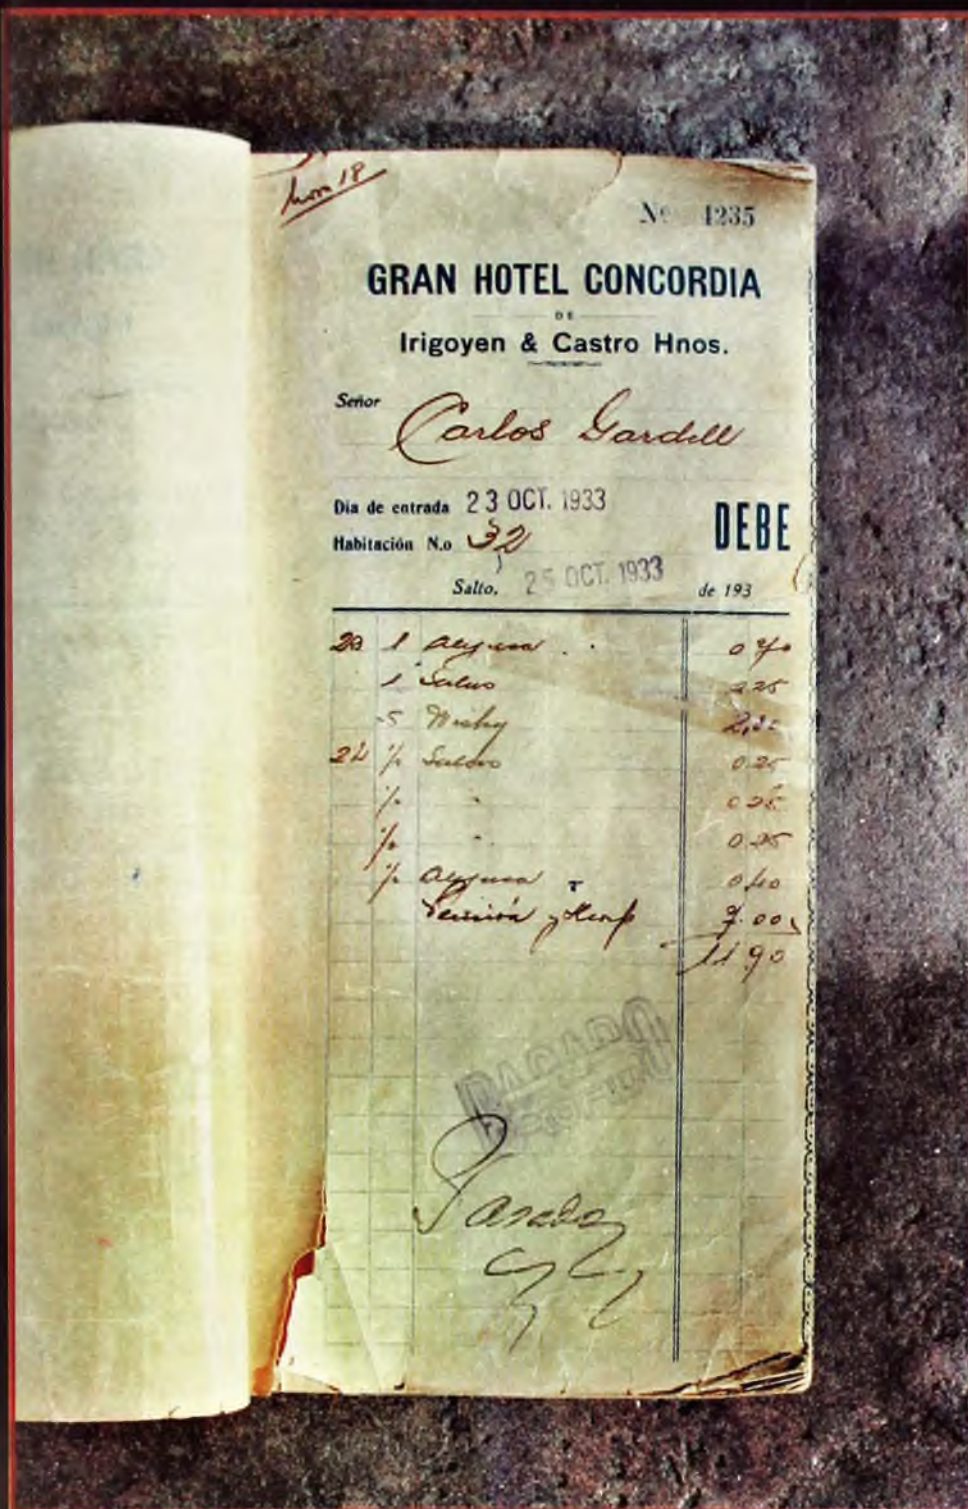 18
Nº 4235
GRAN HOTEL CONCORDIA
DE
Irigoyen & Castro Hnos.
Señor Carlos Gardell
Día de entrada 23 OCT. 1933
Habitación N.o 32
DEBE
Salto, 25 OCT. 1933 de 193
23 1
1 Salus
5 Wisky
24 1/2 Salus 0.25
1/2 " 0.25
1/2 " 0.25
1/2 0.40
Pensión y 7.00
11 90
PAGADO
Pasado